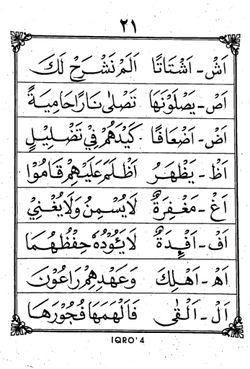 ٢١
اَشْ - اَشْتَاتًا اَلَمْ نَشْرَحْ لَكَ
اَصْ - يَصْلَوْنَهَا تَصْلٰى نَارًا حَامِيَةً
اَضْ - اَضْعَافًا كَيْدَهُمْ فِيْ تَضْلِيْلٍ
اَظْ - يَظْهَرُ اَظْلَمَ عَلَيْهِمْ قَامُوْا
اَغْ - مَغْفِرَةٌ لَا يُسْمِنُ وَلَا يُغْنِيْ
اَفْ - اَفْـِٕدَةٌ لَا يَـُٔوْدُهُ حِفْظُهُمَا
اَهْ - اَهْلِكَ وَعَهْدِهِمْ رَاعُوْنَ
اَلْ - اَلْقٰى فَاَلْهَمَهَا فُجُوْرَهَا
IQRO' 4